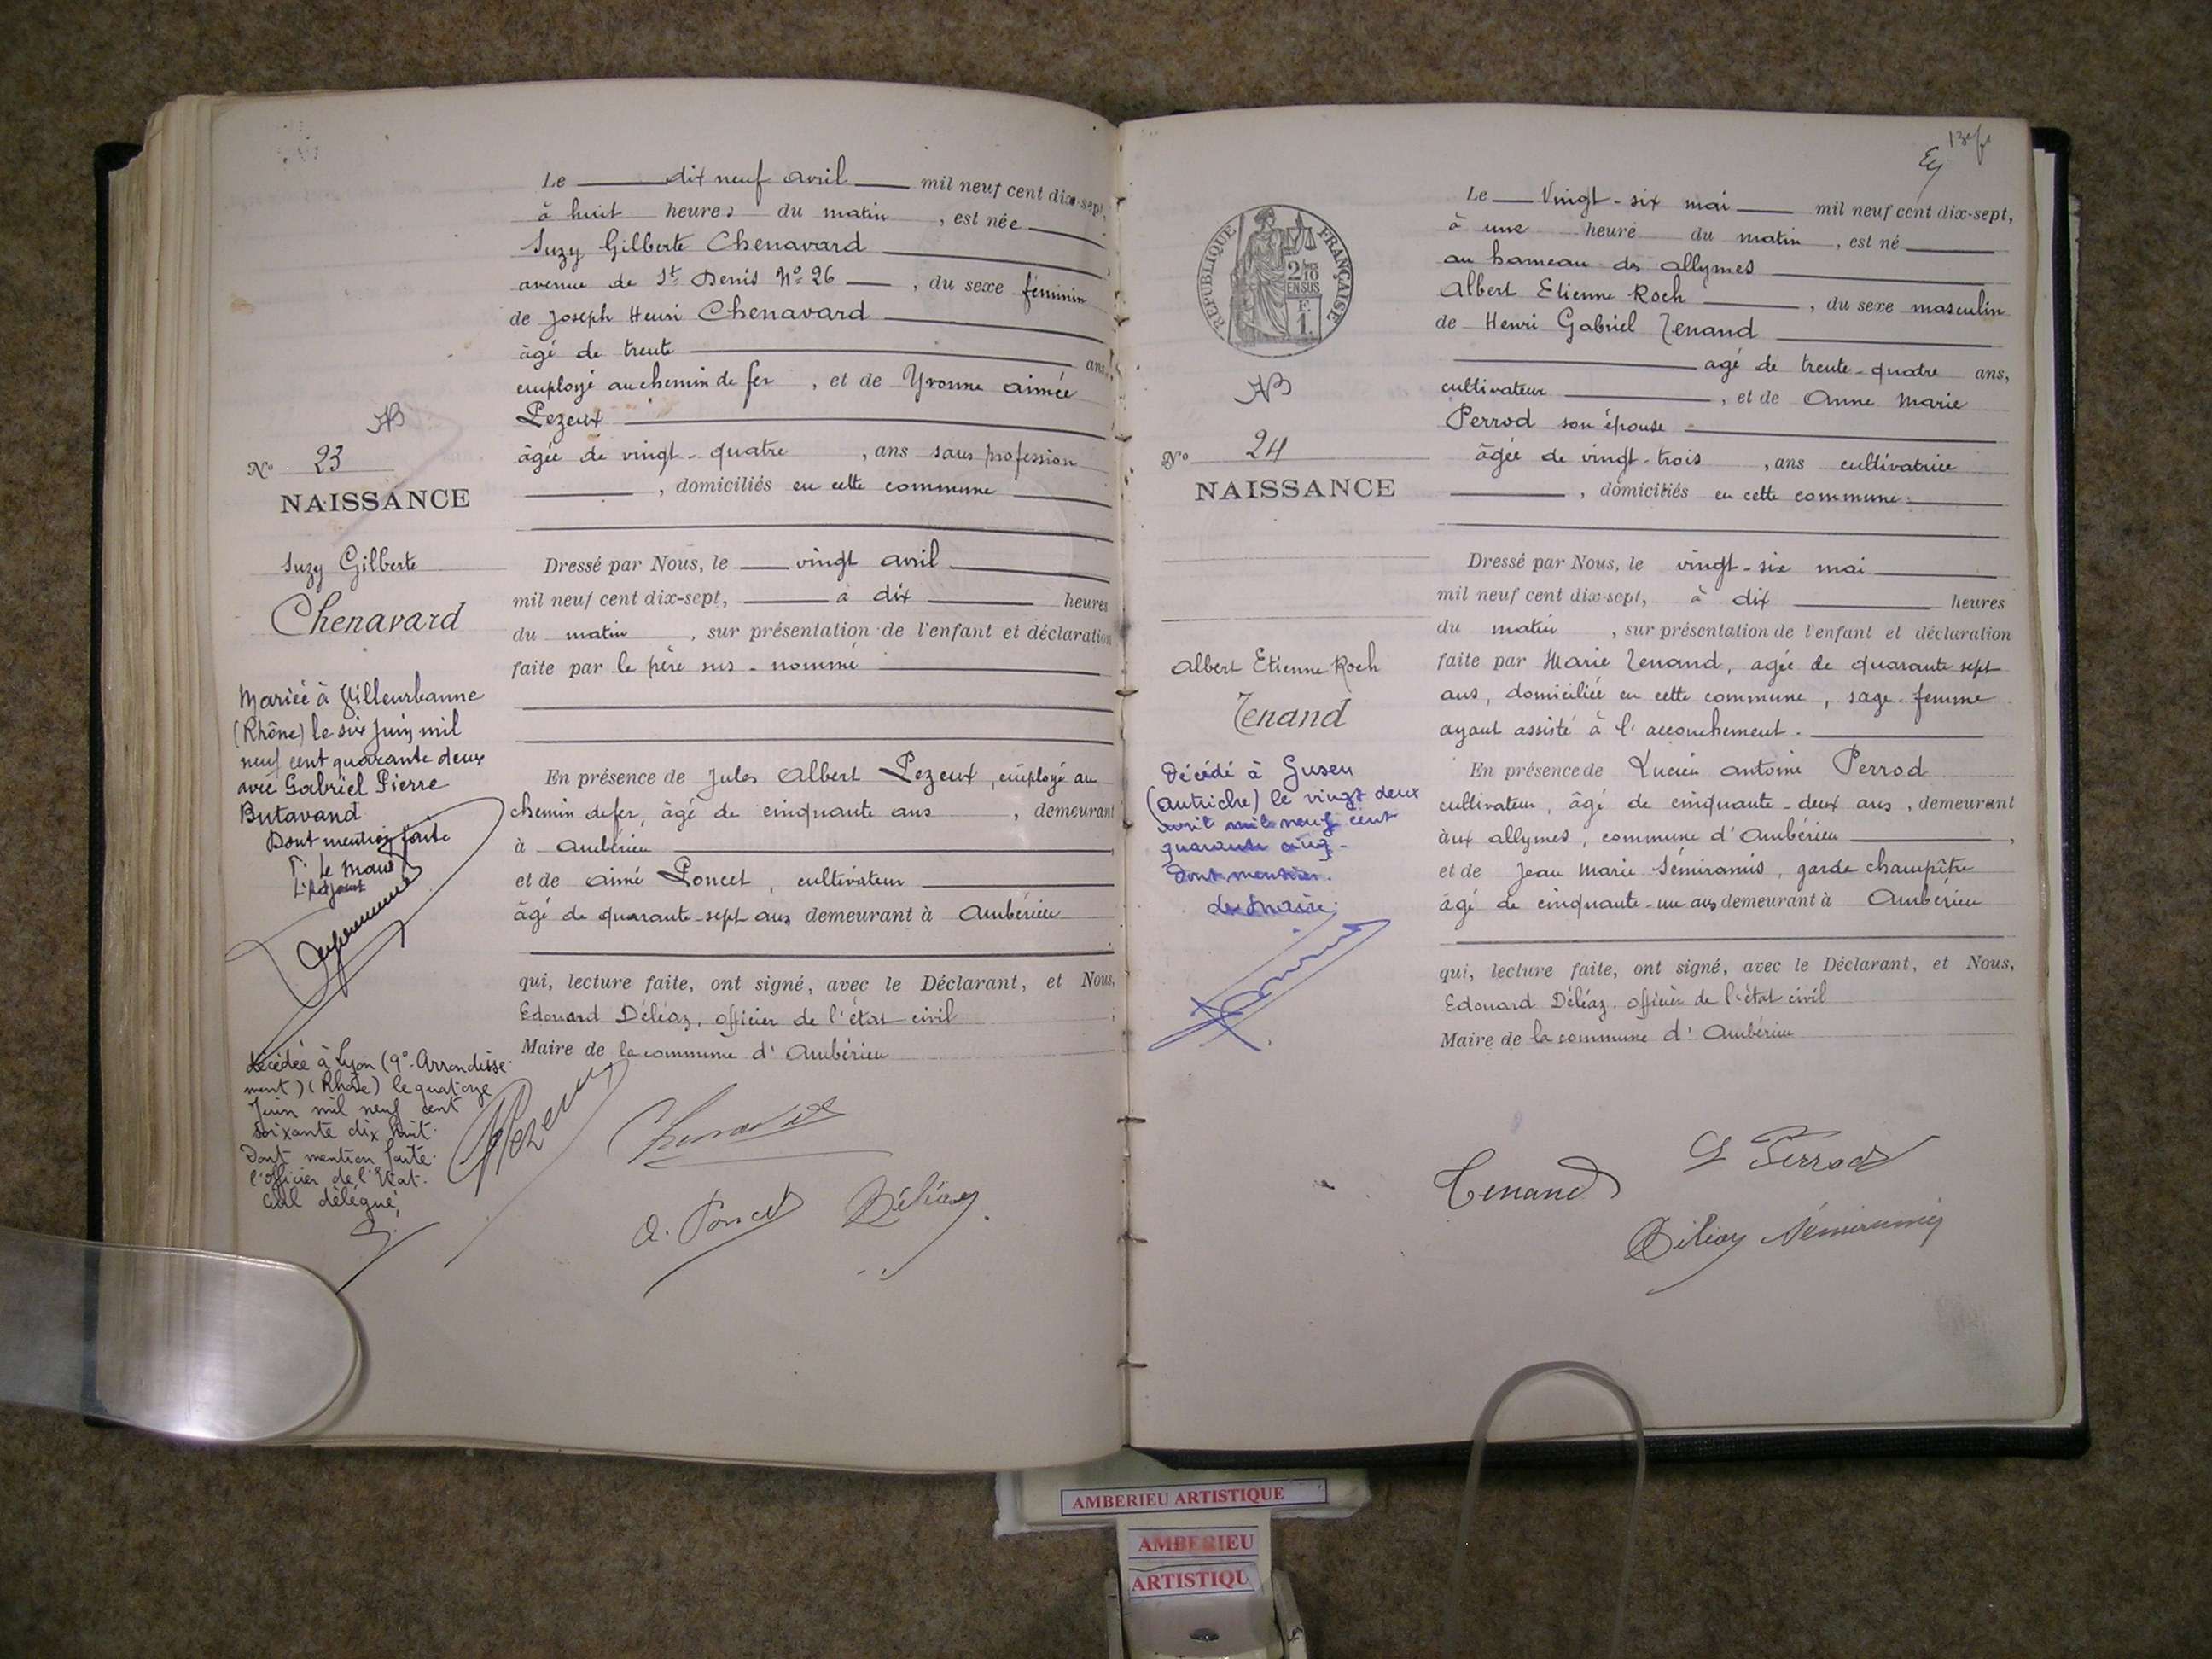 Le dix neuf avril mil neuf cent dix-sept,
à huit heures du matin, est née
Suzy Gilberte Chenavard
avenue de St Denis No 26, du sexe féminin
de Joseph Henri Chenavard
âgé de trente ans,
employé au chemin de fer, et de Yvonne aimée
Lezeux
âgée de vingt-quatre, ans sans profession
, domiciliés en cette commune
Dressé par Nous, le vingt avril
mil neuf cent dix-sept, à dix heures
du matin, sur présentation de l'enfant et déclaration
faite par le père sus-nommé
En présence de Jules Albert Lezeux, employé au
chemin de fer, âgé de cinquante ans, demeurant
à Ambérieu
et de aimé Poncet, cultivateur
âgé de quarante-sept ans demeurant à Ambérieu
qui, lecture faite, ont signé, avec le Déclarant, et Nous,
Edouard Déléaz, officier de l'état civil
Maire de la commune d'Ambérieu
A. Poncet Déléaz
No 23
NAISSANCE
Suzy Gilberte
Chenavard
Mariée à Villeurbanne
(Rhône) le six Juin mil
neuf cent quarante deux
avec Gabriel Pierre
Butavand
Dont mention faite
Pr Le Maire
L'Adjoint
décédée à Lyon (9e Arrondisse-
ment) (Rhône) le quatorze
Juin mil neuf cent
soixante dix huit.
Dont mention faite.
l'officier de l'Etat-
Civil délégué,
REPUBLIQUE FRANÇAISE
2/10
EN SUS
F.
1.
No 24
NAISSANCE
Albert Etienne Roch
Tenand
Décédé à Gusen
(autriche) le vingt deux
avril mil neuf cent
quarante cinq.
Dont mention.
Le Maire.
Le Vingt-six mai mil neuf cent dix-sept,
à une heure du matin, est né
au hameau des allymes
Albert Etienne Roch, du sexe masculin
de Henri Gabriel Tenand
agé de trente-quatre ans,
cultivateur, et de Anne Marie
Perrod son épouse
âgée de vingt-trois, ans cultivatrice
, domiciliés en cette commune.
Dressé par Nous, le vingt-six mai
mil neuf cent dix-sept, à dix heures
du matin, sur présentation de l'enfant et déclaration
faite par Marie Tenand, agée de quarante sept
ans, domiciliée en cette commune, sage-femme
ayant assisté à l'accouchement.
En présence de Lucien antoine Perrod
cultivateur, âgé de cinquante-deux ans, demeurant
aux allymes, commune d'Ambérieu,
et de Jean Marie Sémiramis, garde champêtre
âgé de cinquante-un ans demeurant à Ambérieu
qui, lecture faite, ont signé, avec le Déclarant, et Nous,
Edouard Déléaz, officier de l'état civil
Maire de la commune d'Ambérieu
Tenand L Perrod
Déléaz Sémiramis
AMBERIEU ARTISTIQUE
AMBERIEU
ARTISTIQU